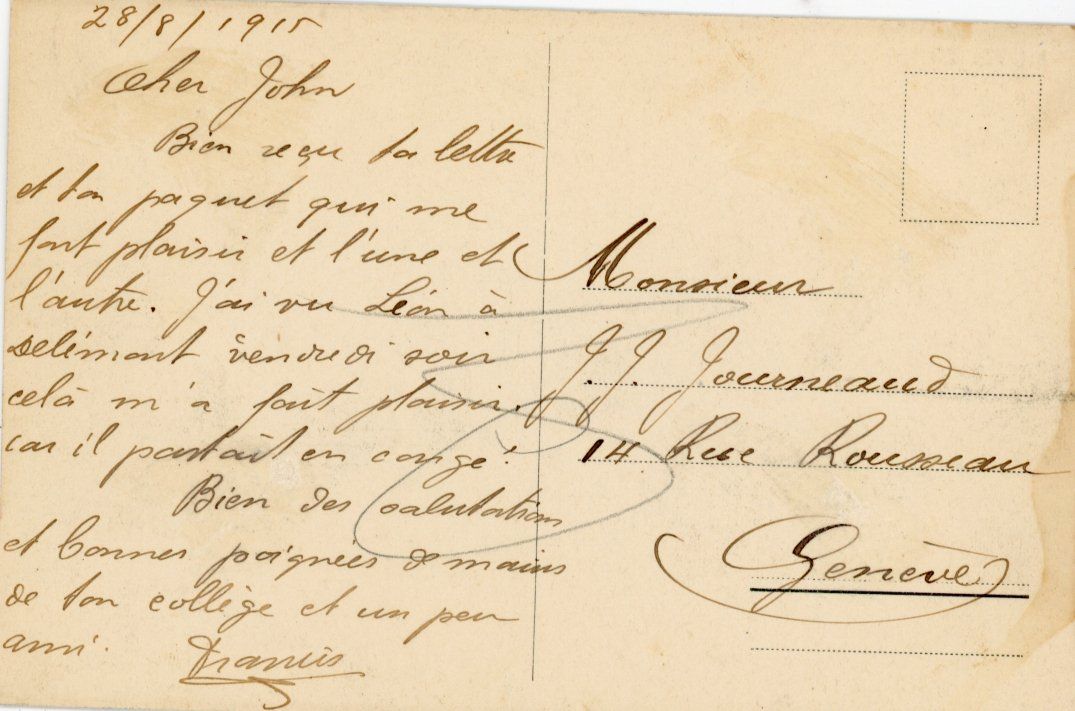 28/8/1915
Cher John
Bien reçu ta lettre
et ton paquet qui me
font plaisir et l'une et
l'autre. J'ai vu Léon à
Delémont vendredi soir
celà m'a fait plaisir.
car il partait en congé.
Bien des salutations
et bonnes poignées de mains
de ton collège et un peu
ami. Francis
Monsieur
J. J. Journeaud
14 Rue Rousseau
Genève